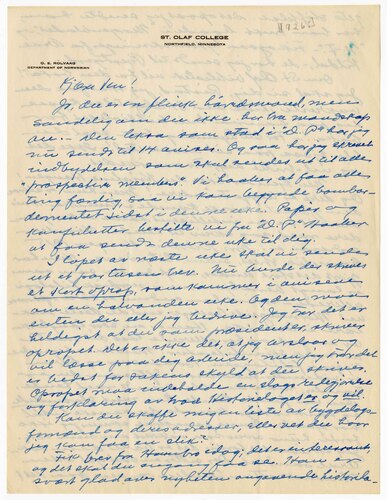 [1926?]
ST. OLAF COLLEGE
NORTHFIELD, MINNESOTA
O. E. ROLVAAG
DEPARTMENT OF NORWEGIAN
Kjære ven!
Ja, du er en flink baadsmand, men
sandelig om du ikke har bra mandskap
au. – Den lekse som stod i "D. P." har jeg
nu sendt til 14 aviser. Og saa har jeg skrevet
indbydelsen som skal sendes ut til alle
"prospective members". Vi haaber at faa alle
ting færdig, saa vi kan begynde bombar-
dementet sidst i denne uke. Papir og
konvolutter bestilte vi fra D. P. Haaber
at faa sendt denne uke til dig.
I løpet av næste uke skal vi sende
ut et par tusen brev. Nu burde der skrives
et kort oprop, som kommer i avisene
om en halvanden uke. Og den maa
enten du eller jeg bedrive. Jeg har det
heldigst at du som præsident skriver
opropet. Det er ikke det, at jeg
vil læsse paa dig arbeide, men jeg tror det er
bedst for saken skyld at du skriver.
Opropet maa indeholde en slags redegjørelse
og forklaring av hvad Historielaget er og vil.
Kan du skaffe mig en liste av bygdelags-
formænd og deres adresser, eller vet du hvor
jeg kan faa en slik?
Fik brev fra Hambro idag; det er interessant,
og det skal du engang faa se. Han er
svært glad over nyheten angaaende historie-